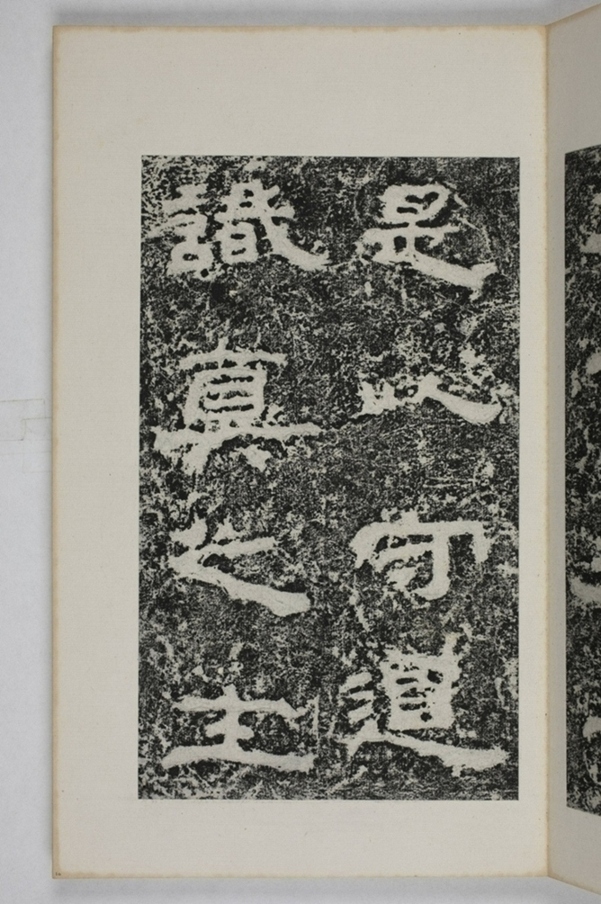 是以守道
識真之主